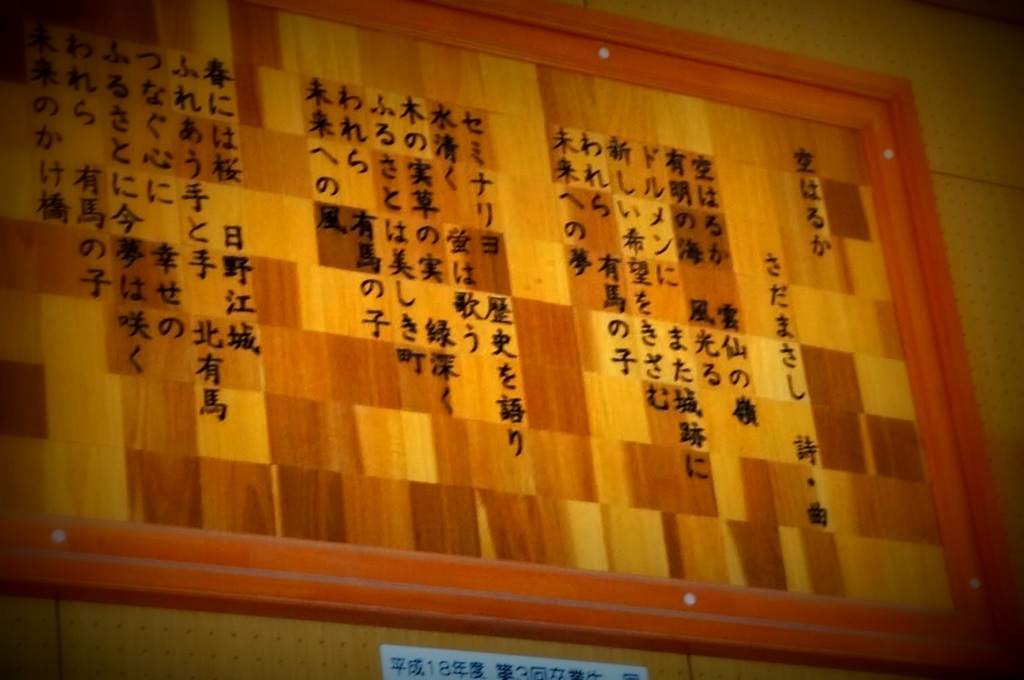 空はるか
さだまさし 詩・曲
空はるか 雲仙の嶺
有明の海 風光る
ドルメンに また城跡に
新しい希望をきざむ
われら 有馬の子
未来への夢
セミナリヨ 歴史を語り
水清く 蛍は歌う
木の実草の実 緑深く
ふるさとは美しき町
われら 有馬の子
未来への風
春には桜 日野江城
ふれあう手と手 北有馬
つなぐ心に 幸せの
ふるさとに今夢は咲く
われら 有馬の子
未来のかけ橋
平成18年度 第3回卒業生一同